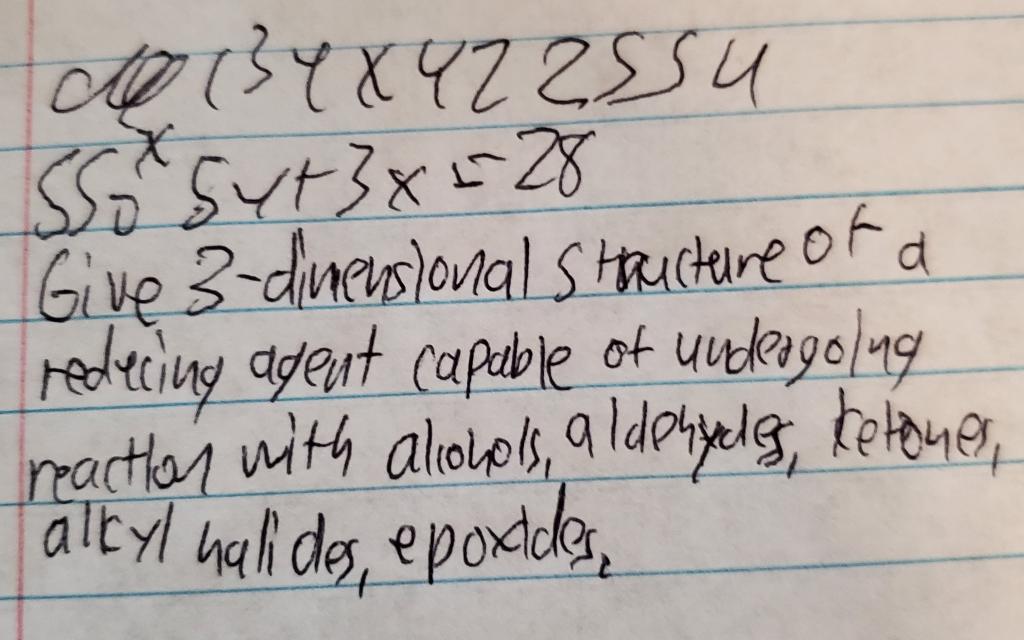 134x422554
550^x 5y+3x=28
Give 3-dimensional structure of a
reducing agent capable of undergoing
reaction with alcohols, aldehydes, ketones,
alkyl halides, epoxides.